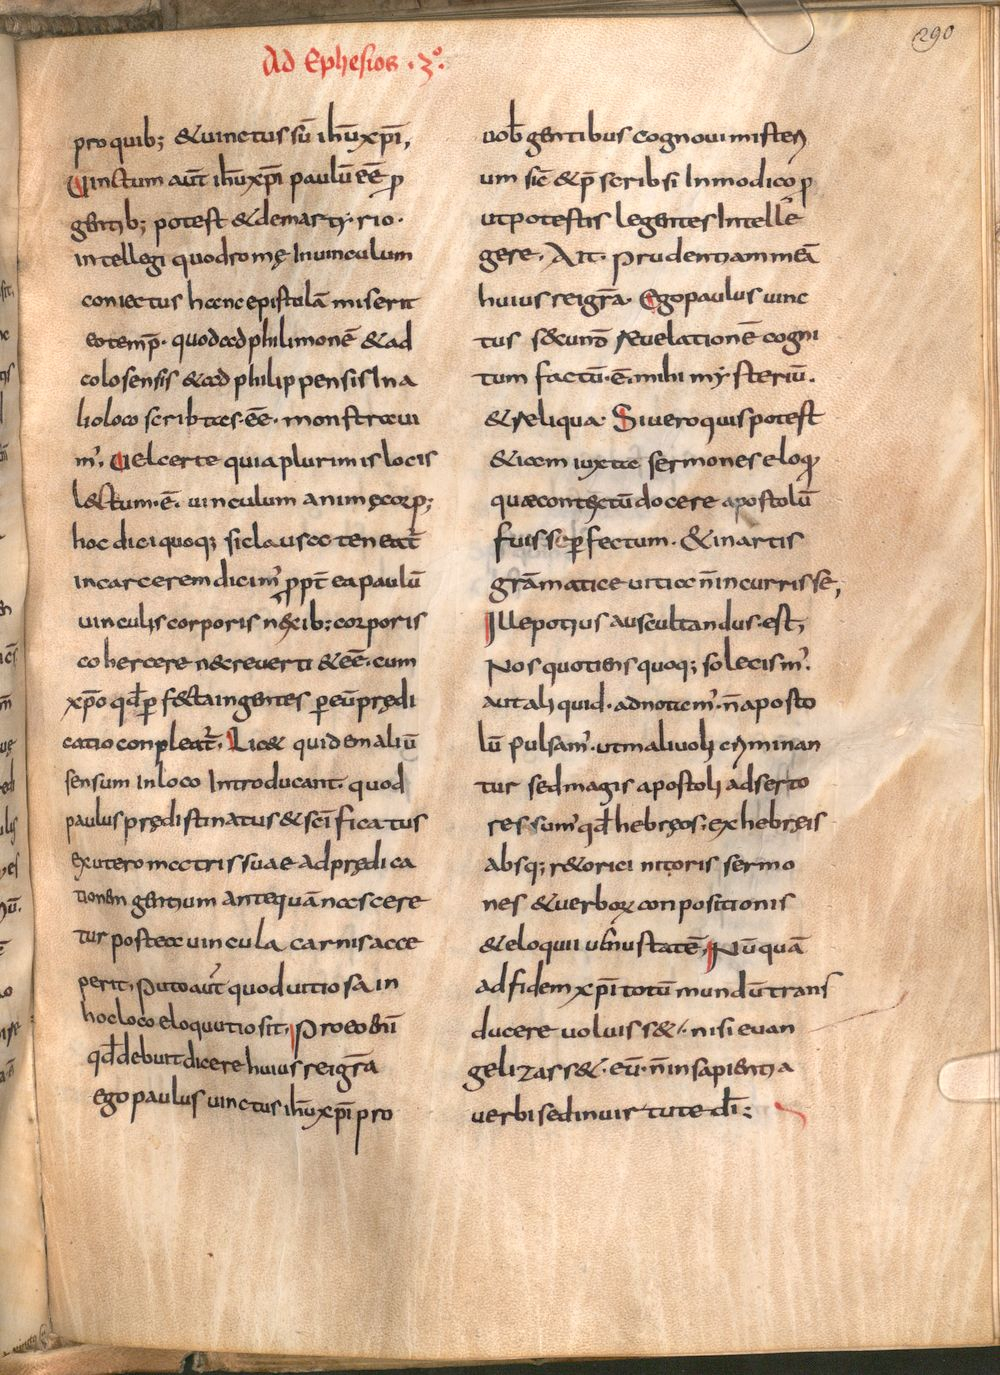 Ad Ephesios · 3º.
290
pro quib; & uinctus sū ihū xp̄i,
Uinctum aūt ihū xp̄i paulū eē ꝑ
gentib; potest & de marty·rio·
intellegi quod romę In uinculum
coniectus hanc epistolā miserit
eo temp̄· quo & ad philimonē & ad
colosensis & ad philippensis In a
lio loco scribtas·eē· monstraui
m'. Uel certe quia plurimis locis
lectum·ē· uinculum animę corp;
hoc dici quoq; si clausa teneat̄
in carcerem dicim' ꝓpt̄ ea paulū
uinculis corporis nexib; corporis
cohercere nec reuerti & eē· cum
xp̄o qd̄ ꝑfecta in gentes ꝑ eū prędi
catio conpleat̄. Lic& quidem aliū
sensum In loco Introducant· quod
paulus prędistinatus & sc̄ificatus
ex utero matris suae ad prędica
tionem gentium antequā nasscere
tur postea uincula carnis acce
perit, puto aūt quod uitiosa in
hoc loco eloqutio sit, pro eo enī
qd̄ debuit dicere huius rei gr̄a
ego paulus uinctus ihū xp̄i pro
uob̄ gentibus cognoui misteri
um sic̄ & p̄scribsi In modico ꝓ
ut potestis legentes Intelle
gere· Ait· prudentiam meā
huius rei gr̄a· Ego paulus uinc
tus secund̄ reuelationē cogni
tum factū·ē· mihi mysteriū.
& reliqua· Si uero quis potest
& iam iuxta sermones eloq
quae contectū docere apostolū
fuisse ꝑfectum· & in artis
grāmatice uitia n̄ incurrisse,
Ille potius auscultandus est;
Nos quotiens quoq; solecism'.
aut aliquid· adnotam'· n̄ aposto
lū pulsam'· ut maliuoli criminan
tur sed magis apostoli adserto
res sum' qd̄ hebreos· ex hebręis
absq; r&orici nitoris sermo
nes & uerboꝝ conpositionis
& eloquii uenustatē, Nūquā
ad fidem xp̄i totū mundū trans
ducere uoluiss&· nisi euan
gelizass&· eū· n̄ in sapientia
uerbi sed in uirtute dī;